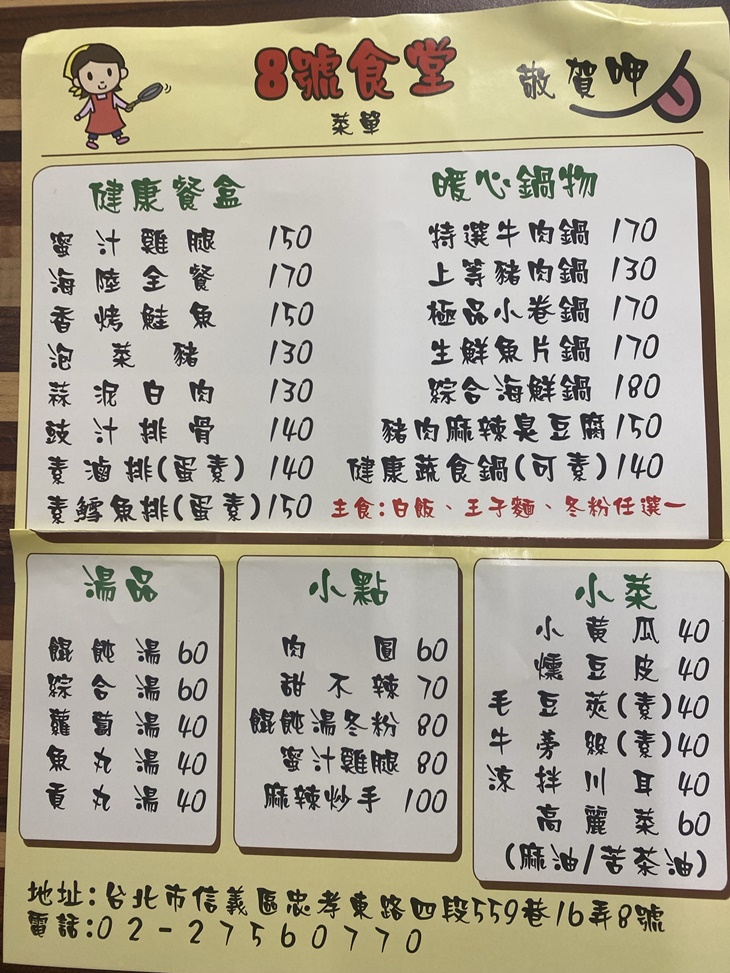 8號食堂
敬賀呷
菜單
健康餐盒
蜜汁雞腿 150
海陸全餐 170
香烤鮭魚 150
泡菜豬 130
蒜泥白肉 130
豉汁排骨 140
素滷排(蛋素) 140
素鱈魚排(蛋素) 150
暖心鍋物
特選牛肉鍋 170
上等豬肉鍋 130
極品小卷鍋 170
生鮮魚片鍋 170
綜合海鮮鍋 180
豬肉麻辣臭豆腐 150
健康蔬食鍋(可素) 140
主食:白飯、王子麵、冬粉任選一
湯品
餛飩湯 60
綜合湯 60
蘿蔔湯 40
魚丸湯 40
貢丸湯 40
小點
肉圓 60
甜不辣 70
餛飩湯冬粉 80
蜜汁雞腿 80
麻辣炒手 100
小菜
小黃瓜 40
燻豆皮 40
毛豆莢(素) 40
牛蒡絲(素) 40
涼拌川耳 40
高麗菜 60
(麻油/苦茶油)
地址:台北市信義區忠孝東路四段559巷16弄8號
電話:02-27560770